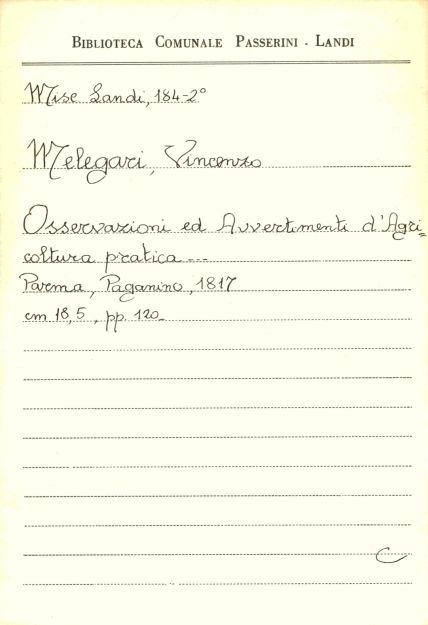 BIBLIOTECA COMUNALE PASSERINI - LANDI
Misc Landi, 184-2°
Melegari, Vincenzo
Osservazioni ed Avvertimenti d'Agri=
coltura pratica ---
Parma, Paganino, 1817
cm 18,5, pp. 120_
C